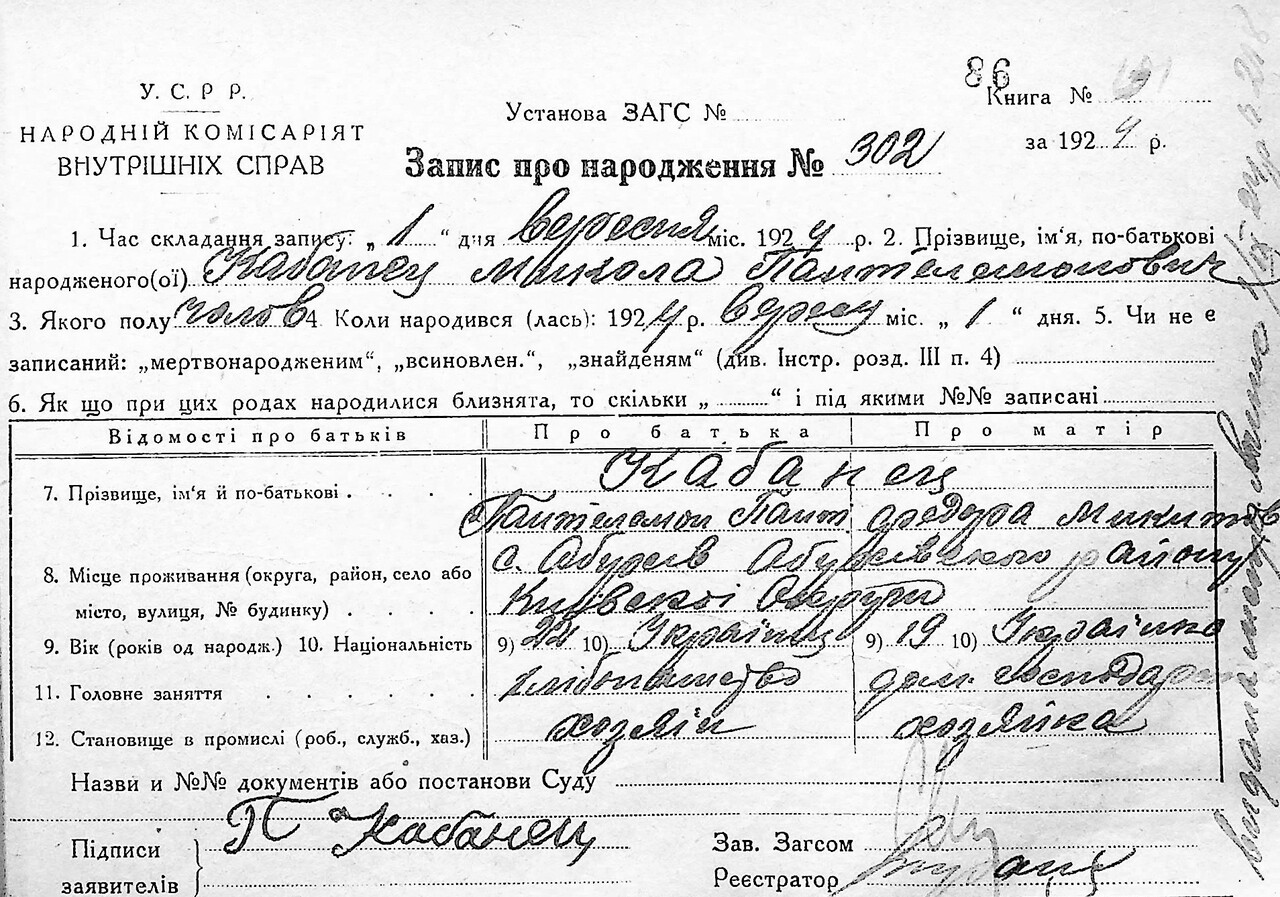 86
У. С. Р Р.
НАРОДНІЙ КОМІСАРІЯТ
ВНУТРІШНІХ СПРАВ
Установа ЗАГС №
Книга №
за 1924 р.
Запис про народження № 302
1. Час складання запису: „ 1 “ дня вересня міс. 1924 р. 2. Прізвище, ім'я, по-батькові
народженого(ої) Кабанец Микола Пантелемонович
3. Якого полу чолов 4. Коли народився (лась): 1924 р. вересу міс. „ 1 “ дня. 5. Чи не є
записаний: „мертвонародженим“, „всиновлен.“, „знайденям“ (див. Інстр. розд. III п. 4)
6. Як що при цих родах народилися близнята, то скільки „ “ і під якими №№ записані
Відомості про батьків Про батька Про матір
7. Прізвище, ім'я й по-батькові Кабанец
Пантелемон Пант федора Микитов
8. Місце проживання (округа, район, село або с. Обухів Обухівского району
місто, вулиця, № будинку) Київскої Округи
9. Вік (років от народж.) 10. Національність 9) 22 10) Українц 9) 19 10) Українка
11. Головне заняття хлібопашество дом. господар
12. Становище в промислі (роб., служб., хаз.) хозяін хозяйка
Назви и №№ документів або постанови Суду
Підписи
заявителів
П Кабанец
Зав. Загсом
Реєстратор